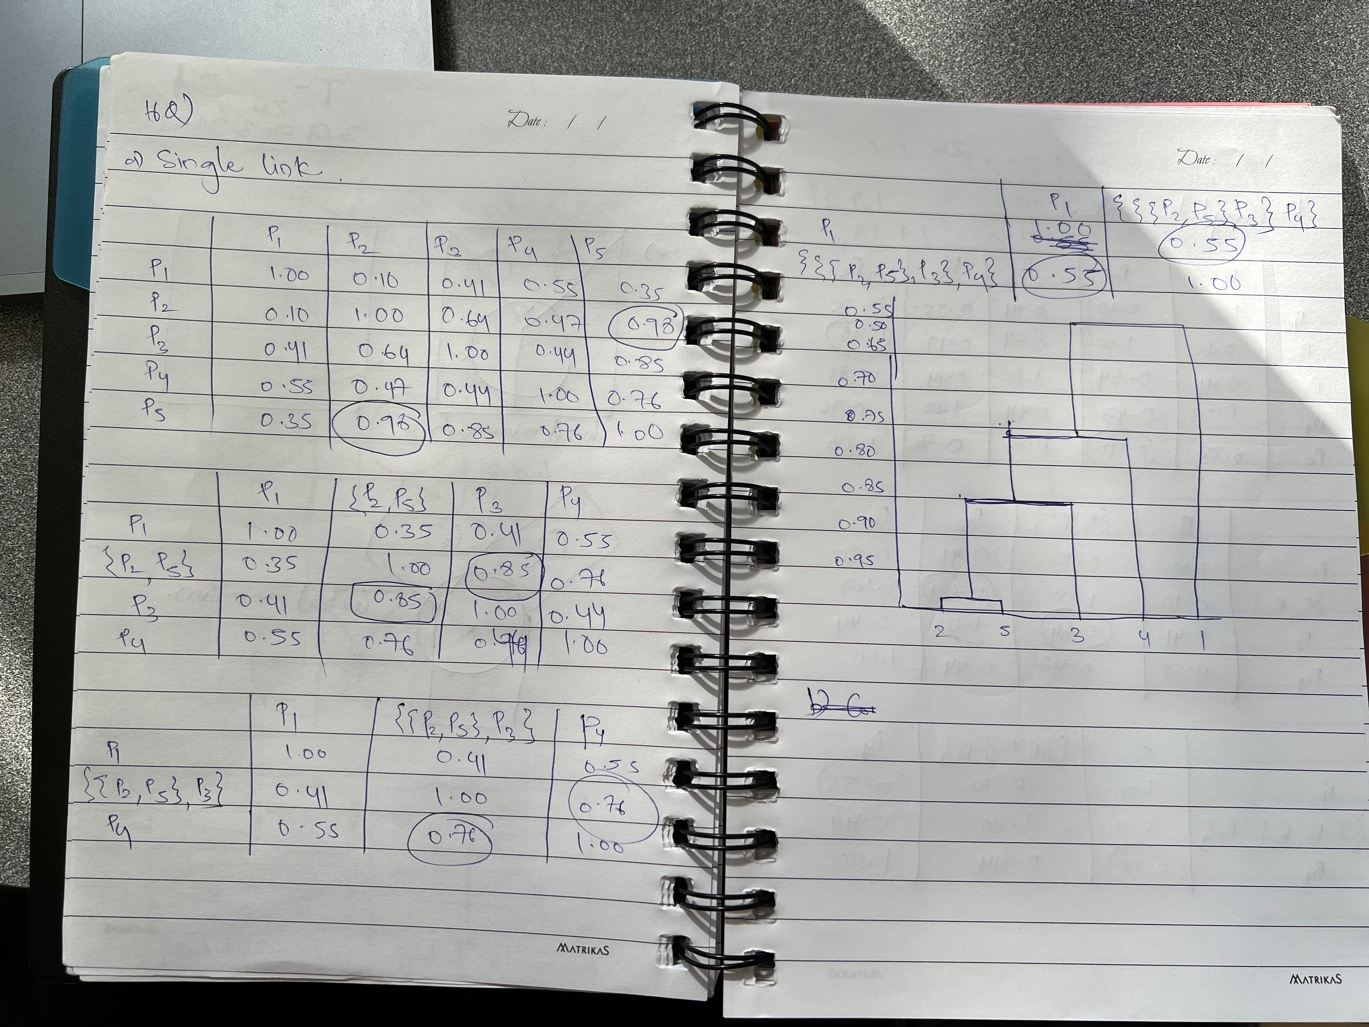 HQ)
Date: / /
a) Single link.
P1 P2 P3 P4 P5
P1 1.00 0.10 0.41 0.55 0.35
P2 0.10 1.00 0.64 0.47 0.98
P3 0.41 0.64 1.00 0.44 0.85
P4 0.55 0.47 0.44 1.00 0.76
P5 0.35 0.98 0.85 0.76 1.00
P1 {P2, P5} P3 P4
P1 1.00 0.35 0.41 0.55
{P2, P5} 0.35 1.00 0.85 0.76
P3 0.41 0.85 1.00 0.44
P4 0.55 0.76 0.44 1.00
P1 {{P2, P5}, P3} P4
P1 1.00 0.41 0.55
{{P2, P5}, P3} 0.41 1.00 0.76
P4 0.55 0.76 1.00
MATRIKAS
Date: / /
P1 {{{P2, P5} P3} P4}
P1 1.00 0.55
{{{P2, P5}, P3}, P4} 0.55 1.00
0.55
0.50
0.65
0.70
0.75
0.80
0.85
0.90
0.95
2 5 3 4 1
MATRIKAS